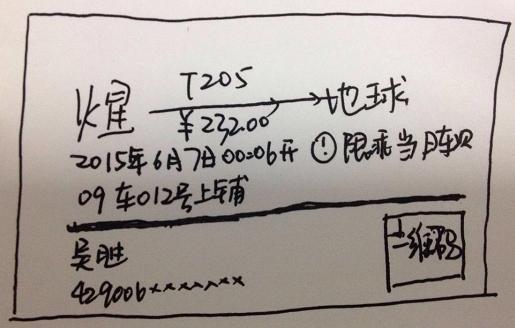 T205
火星 → 地球
¥232.00
2015年6月7日00:06开 ! 限乘当日车次
09车012号上铺
吴胜
二维码
429006×××××××